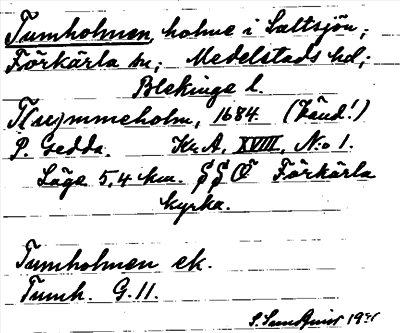 Tumholmen, holme i Saltsjön;
Förkärla sn; Medelstads hd;
Blekinge l.
T(u)mmeholm, 1684. (Länd!)
P. Gedda. KrA, XVIII, N:o 1.
Läge 5,4 km. SSÖ Förkärla
kyrka.
Tumholmen ek.
Tumh. G.11.